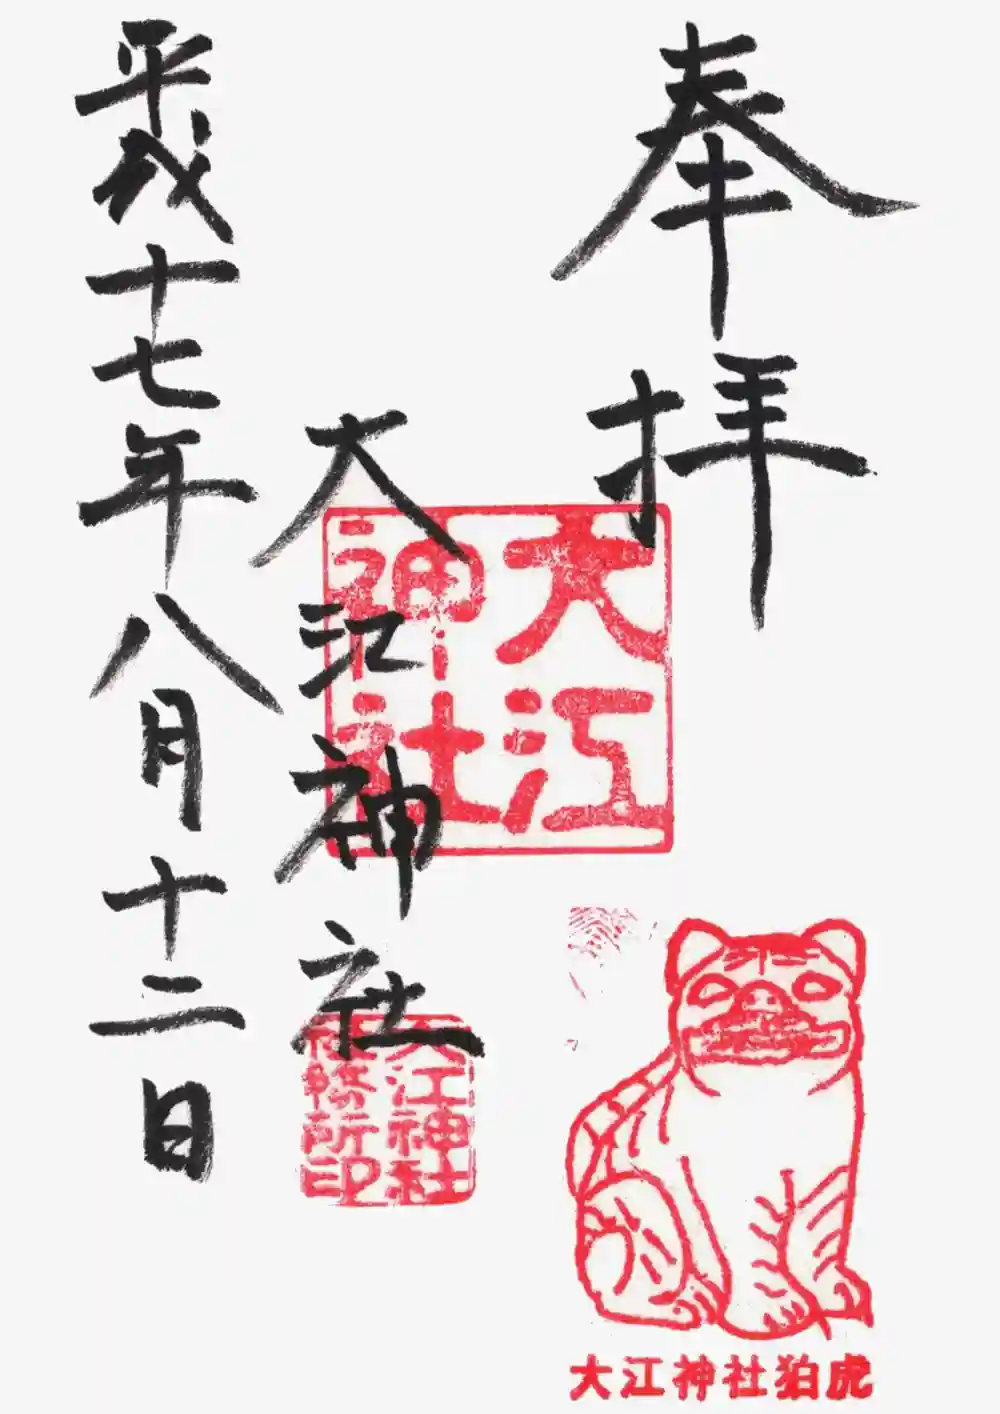 奉拝
大江神社
大江神社
大江神社
社務所印
平成十七年八月十二日
大江神社狛虎